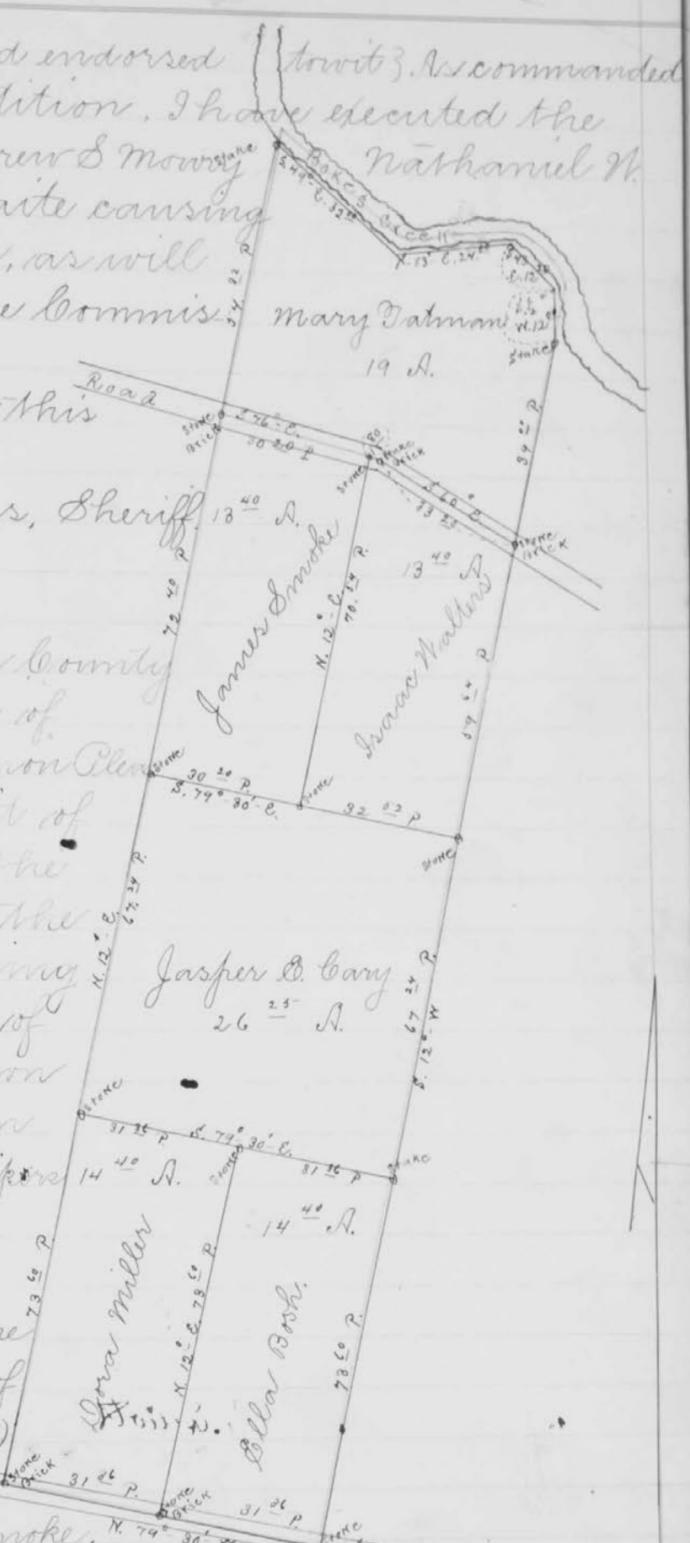 d endorsed towit}. As commanded
dition. I have executed the
rew S Mowry Nathaniel W.
aite causing
, as will
e Commis
this
s, Sheriff
County
of
mon Pleas
t of
the
the
ing
of
on
Stake
Bokes Creek
54 22 P
Mary Tatman
19 A.
Stake
39 P
Road
Stone
Brick
S. 76° E.
30 20 P
Stone
Brick
S 60° E.
33
Stone
Brick
13 40 A.
James Smoke
72 40 P
N. 12° E.
70. 24 P.
13 40 A
Isaac Walters
59 64 P
Stone
30 20 P.
S. 79° 30' E.
Stone
32 02 P
Stone
N. 12° E.
67. 24 P.
Jasper E. Cary
26 25 A.
67 24 P.
S. 12° W
Stone
31 36 P
S. 79° 30' E.
Stone
31 36 P
Stake
14 40 A.
Dora Miller
73 60 P
N. 12° E. 73 60 P.
14 40 A.
Ella Bosh.
73 60 P
Stone
Brick
31 36 P.
Stone
Brick
31 36 P.
Stone
N. 79° 30'
moke.